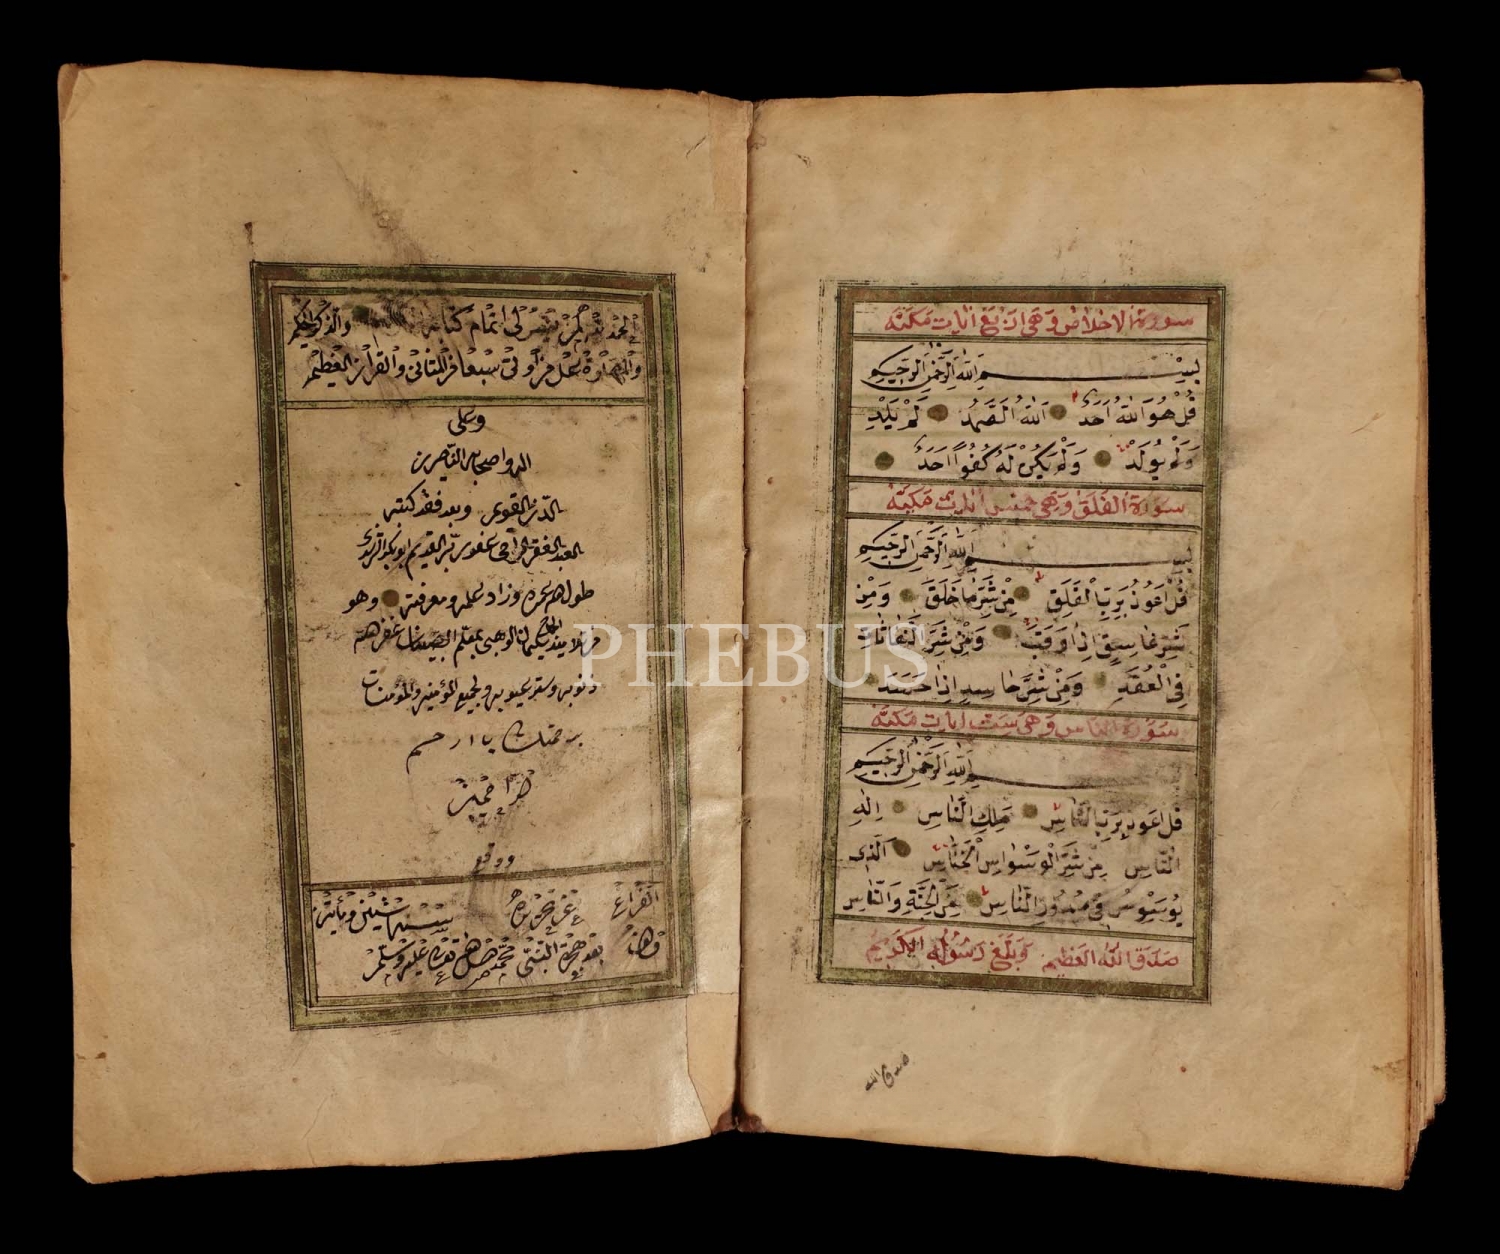 سورة الاخلاص وهي اربع ايات مكية
بِسْمِ اللهِ الرَّحْمٰنِ الرَّحِيمِ
قُلْ هُوَ اللهُ اَحَدٌ اَللهُ الصَّمَدُ لَمْ يَلِدْ
وَلَمْ يُولَدْ وَلَمْ يَكُنْ لَهُ كُفُوًا اَحَدٌ
سورة الفلق وهي خمس ايات مكية
بِسْمِ اللهِ الرَّحْمٰنِ الرَّحِيمِ
قُلْ اَعُوذُ بِرَبِّ الْفَلَقِ مِنْ شَرِّ مَا خَلَقَ وَمِنْ
شَرِّ غَاسِقٍ اِذَا وَقَبَ وَمِنْ شَرِّ النَّفَّاثَاتِ
فِي الْعُقَدِ وَمِنْ شَرِّ حَاسِدٍ اِذَا حَسَدَ
سورة الناس وهي ست ايات مكية
بِسْمِ اللهِ الرَّحْمٰنِ الرَّحِيمِ
قُلْ اَعُوذُ بِرَبِّ النَّاسِ مَلِكِ النَّاسِ اِلٰهِ
النَّاسِ مِنْ شَرِّ الْوَسْوَاسِ الْخَنَّاسِ اَلَّذِى
يُوَسْوِسُ فِي صُدُورِ النَّاسِ مِنَ الْجِنَّةِ وَالنَّاسِ
صدق الله العظيم وبلغ رسوله الكريم
صدق الله
الحمد لله لمن يسر لي اتمام كتابه والذكر الحكيم
على من أوتي سبعا من المثاني والقرآن العظيم
وعلى
اله واصحابه الناصرين
الدين القويم وبعد فقد كتبته
العبد الفقير الراجي عفو ربه القديم ابو بكر
طول الله عمره وزاد علمه ومعرفته وهو
من تلاميذ الحاج غفر الله
ذنوبه وستر عيوبه ولجميع المؤمنين والمؤمنات
برحمتك يا ارحم
الراحمين
ووقع
الفراغ سنة مأتين
بعد هجرة النبي محمد صلى الله تعالى عليه وسلم
PHEBUS